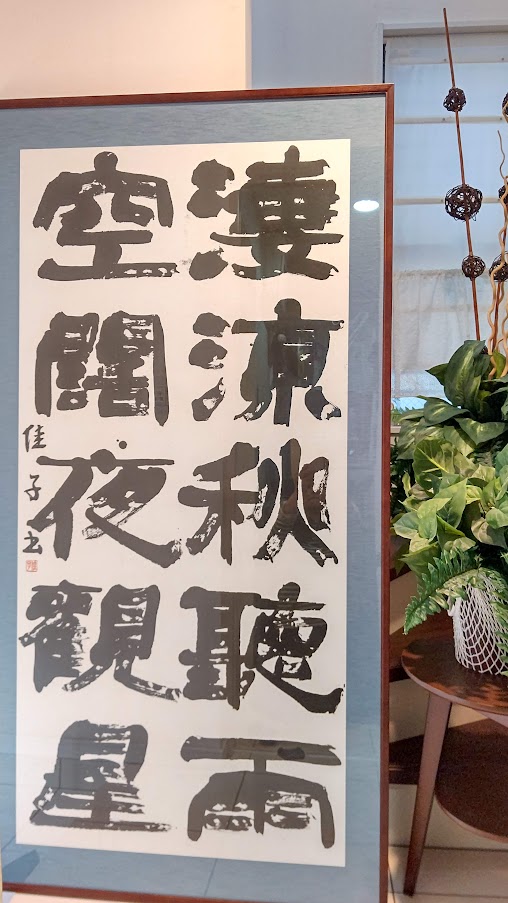 凄涼秋聽雨
空闊夜觀星
佳子书